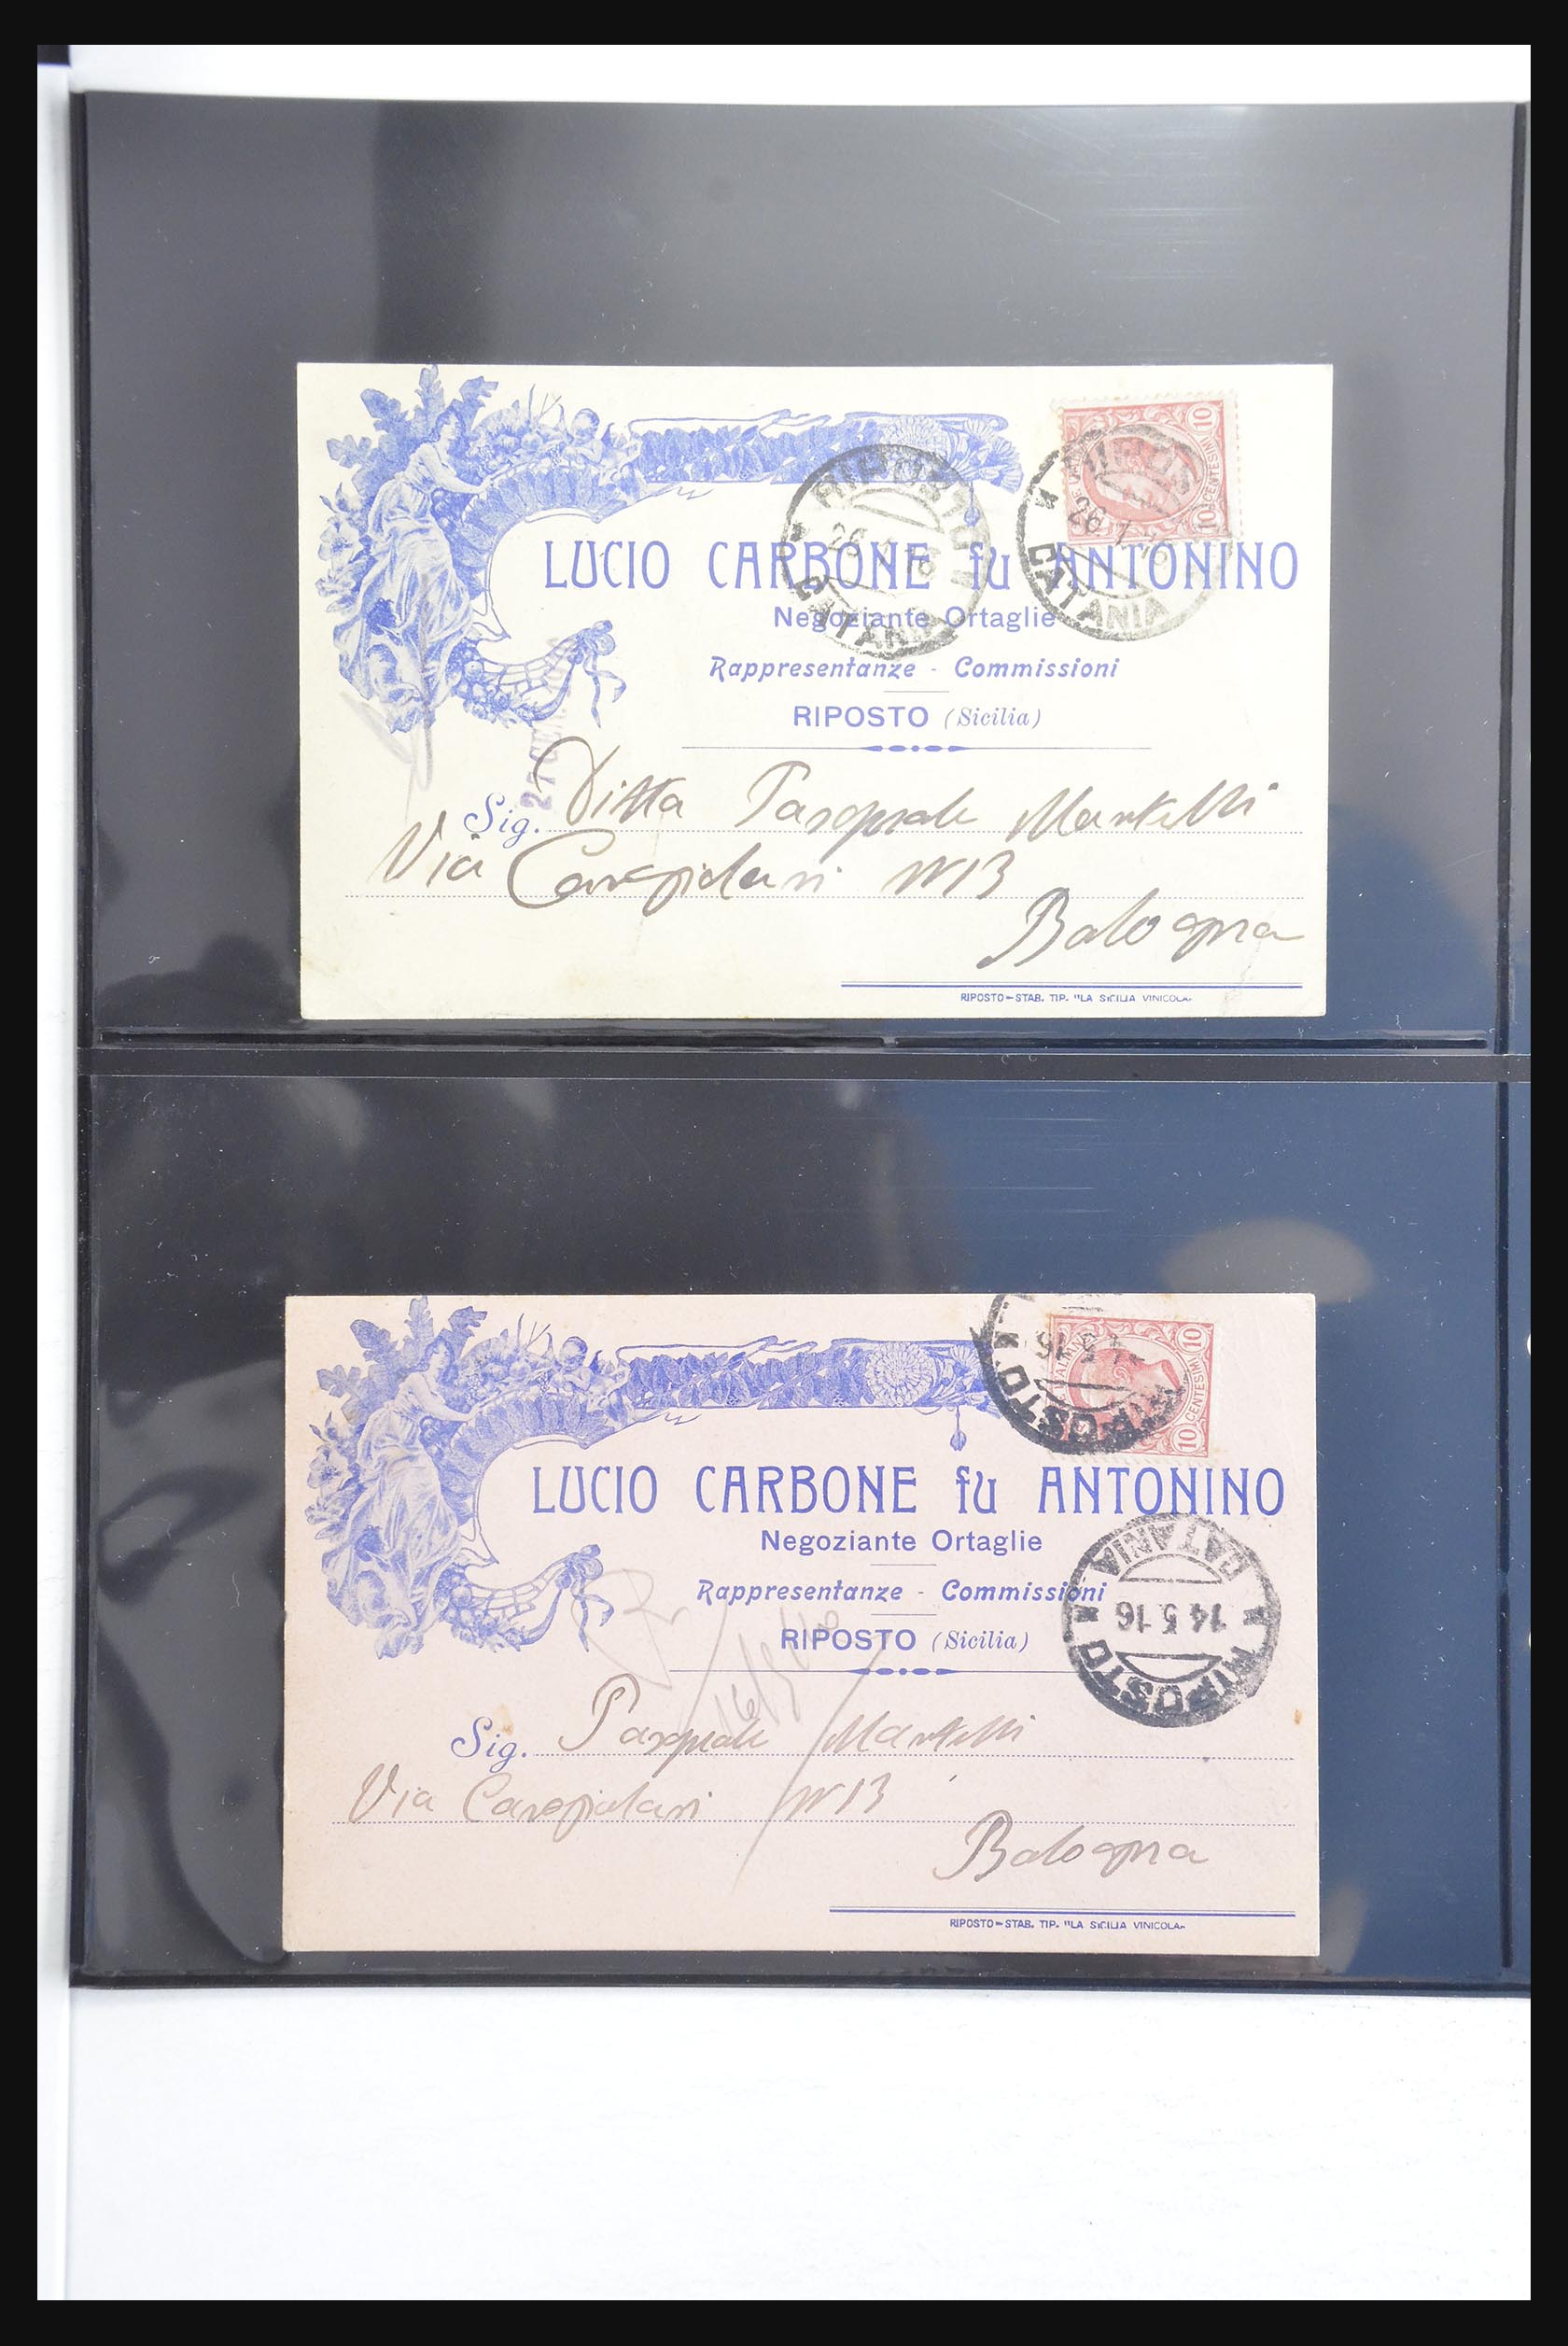 10 CENTESIMI 10
RIPOSTO
26 1 16
CATANIA
26 1 16
CATANIA
LUCIO CARBONE fu ANTONINO
Negoziante Ortaglie
Rappresentanze - Commissioni
RIPOSTO (Sicilia)
27 GEN
Sig. Ditta Pasquale Mantelli
Via Carepidari N 13
Bologna
RIPOSTO - STAB. TIP. "LA SICILIA VINICOLA"
10 CENTESIMI 10
14 5 16
RIPOSTO
LUCIO CARBONE fu ANTONINO
Negoziante Ortaglie
Rappresentanze - Commissioni
RIPOSTO (Sicilia)
CATANIA
14.5.16
RIPOSTO
Sig. Pasquale Mantelli
Via Carepidari N 13
Bologna
RIPOSTO - STAB. TIP. "LA SICILIA VINICOLA"